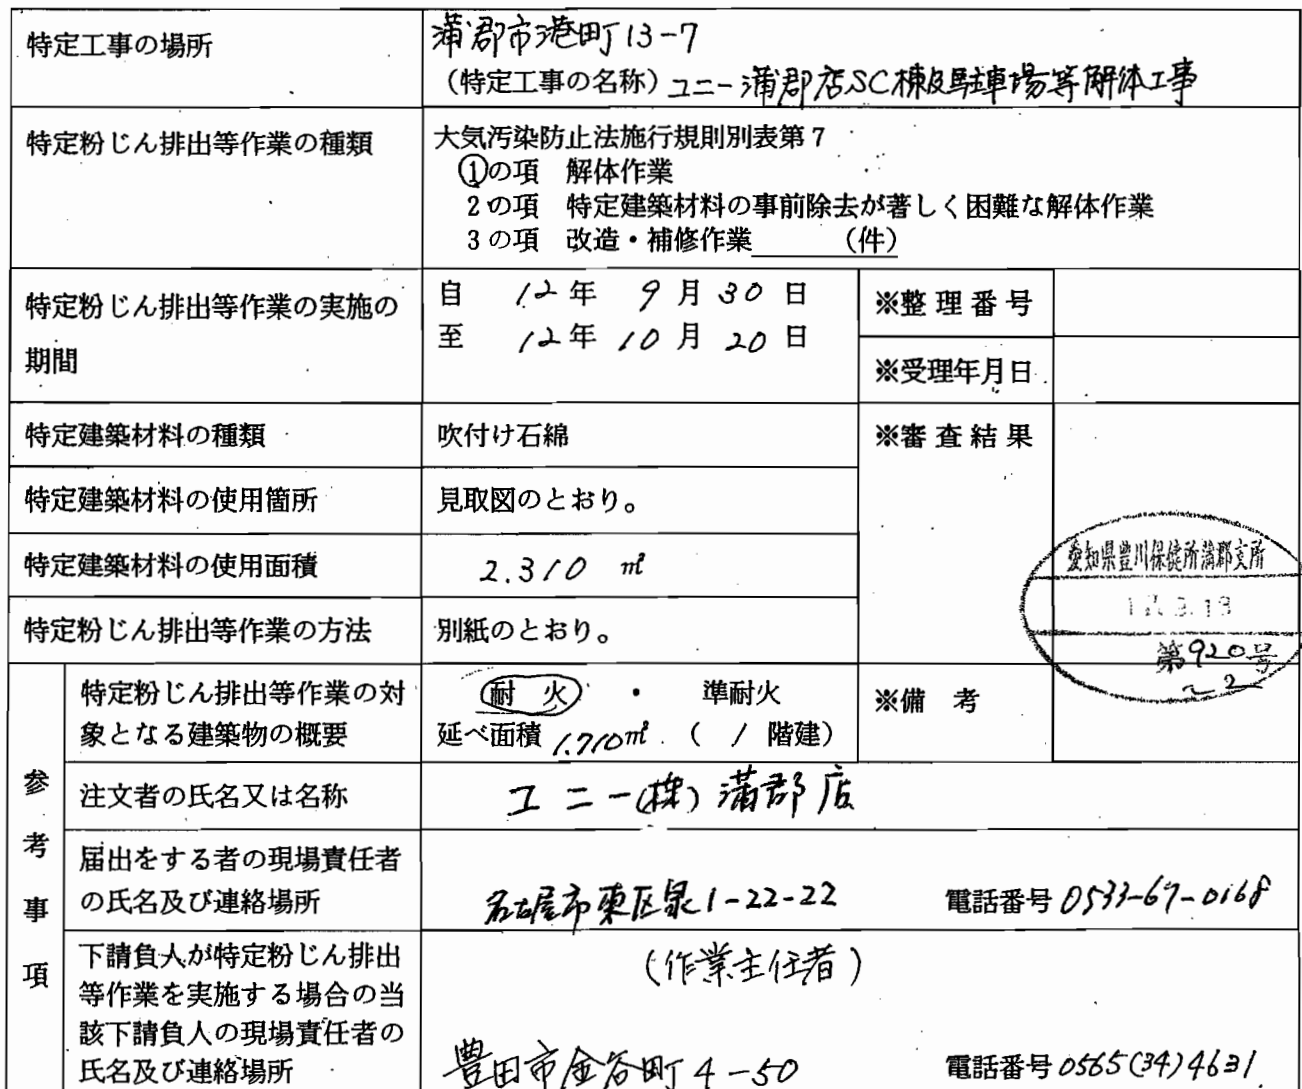 特定工事の場所
蒲郡市港町13-7
(特定工事の名称) ユニー蒲郡店SC棟及駐車場等解体工事
特定粉じん排出等作業の種類
大気汚染防止法施行規則別表第7
①の項 解体作業
2の項 特定建築材料の事前除去が著しく困難な解体作業
3の項 改造・補修作業 (件)
特定粉じん排出等作業の実施の
期間
自 12年 9月30日
至 12年10月20日
※整理番号
※受理年月日
特定建築材料の種類
吹付け石綿
※審査結果
特定建築材料の使用箇所
見取図のとおり。
特定建築材料の使用面積
2.310 ㎡
特定粉じん排出等作業の方法
別紙のとおり。
愛知県豊川保健所蒲郡支所
第920号
22
参考事項
特定粉じん排出等作業の対
象となる建築物の概要
耐火 ・ 準耐火
延べ面積 1.710㎡ ( 1 階建)
※備考
注文者の氏名又は名称
ユニー(株)蒲郡店
届出をする者の現場責任者
の氏名及び連絡場所
名古屋市東区泉1-22-22 電話番号 0533-67-0168
下請負人が特定粉じん排出
等作業を実施する場合の当
該下請負人の現場責任者の
氏名及び連絡場所
(作業主任者)
豊田市金谷町4-50 電話番号 0565(34)4631